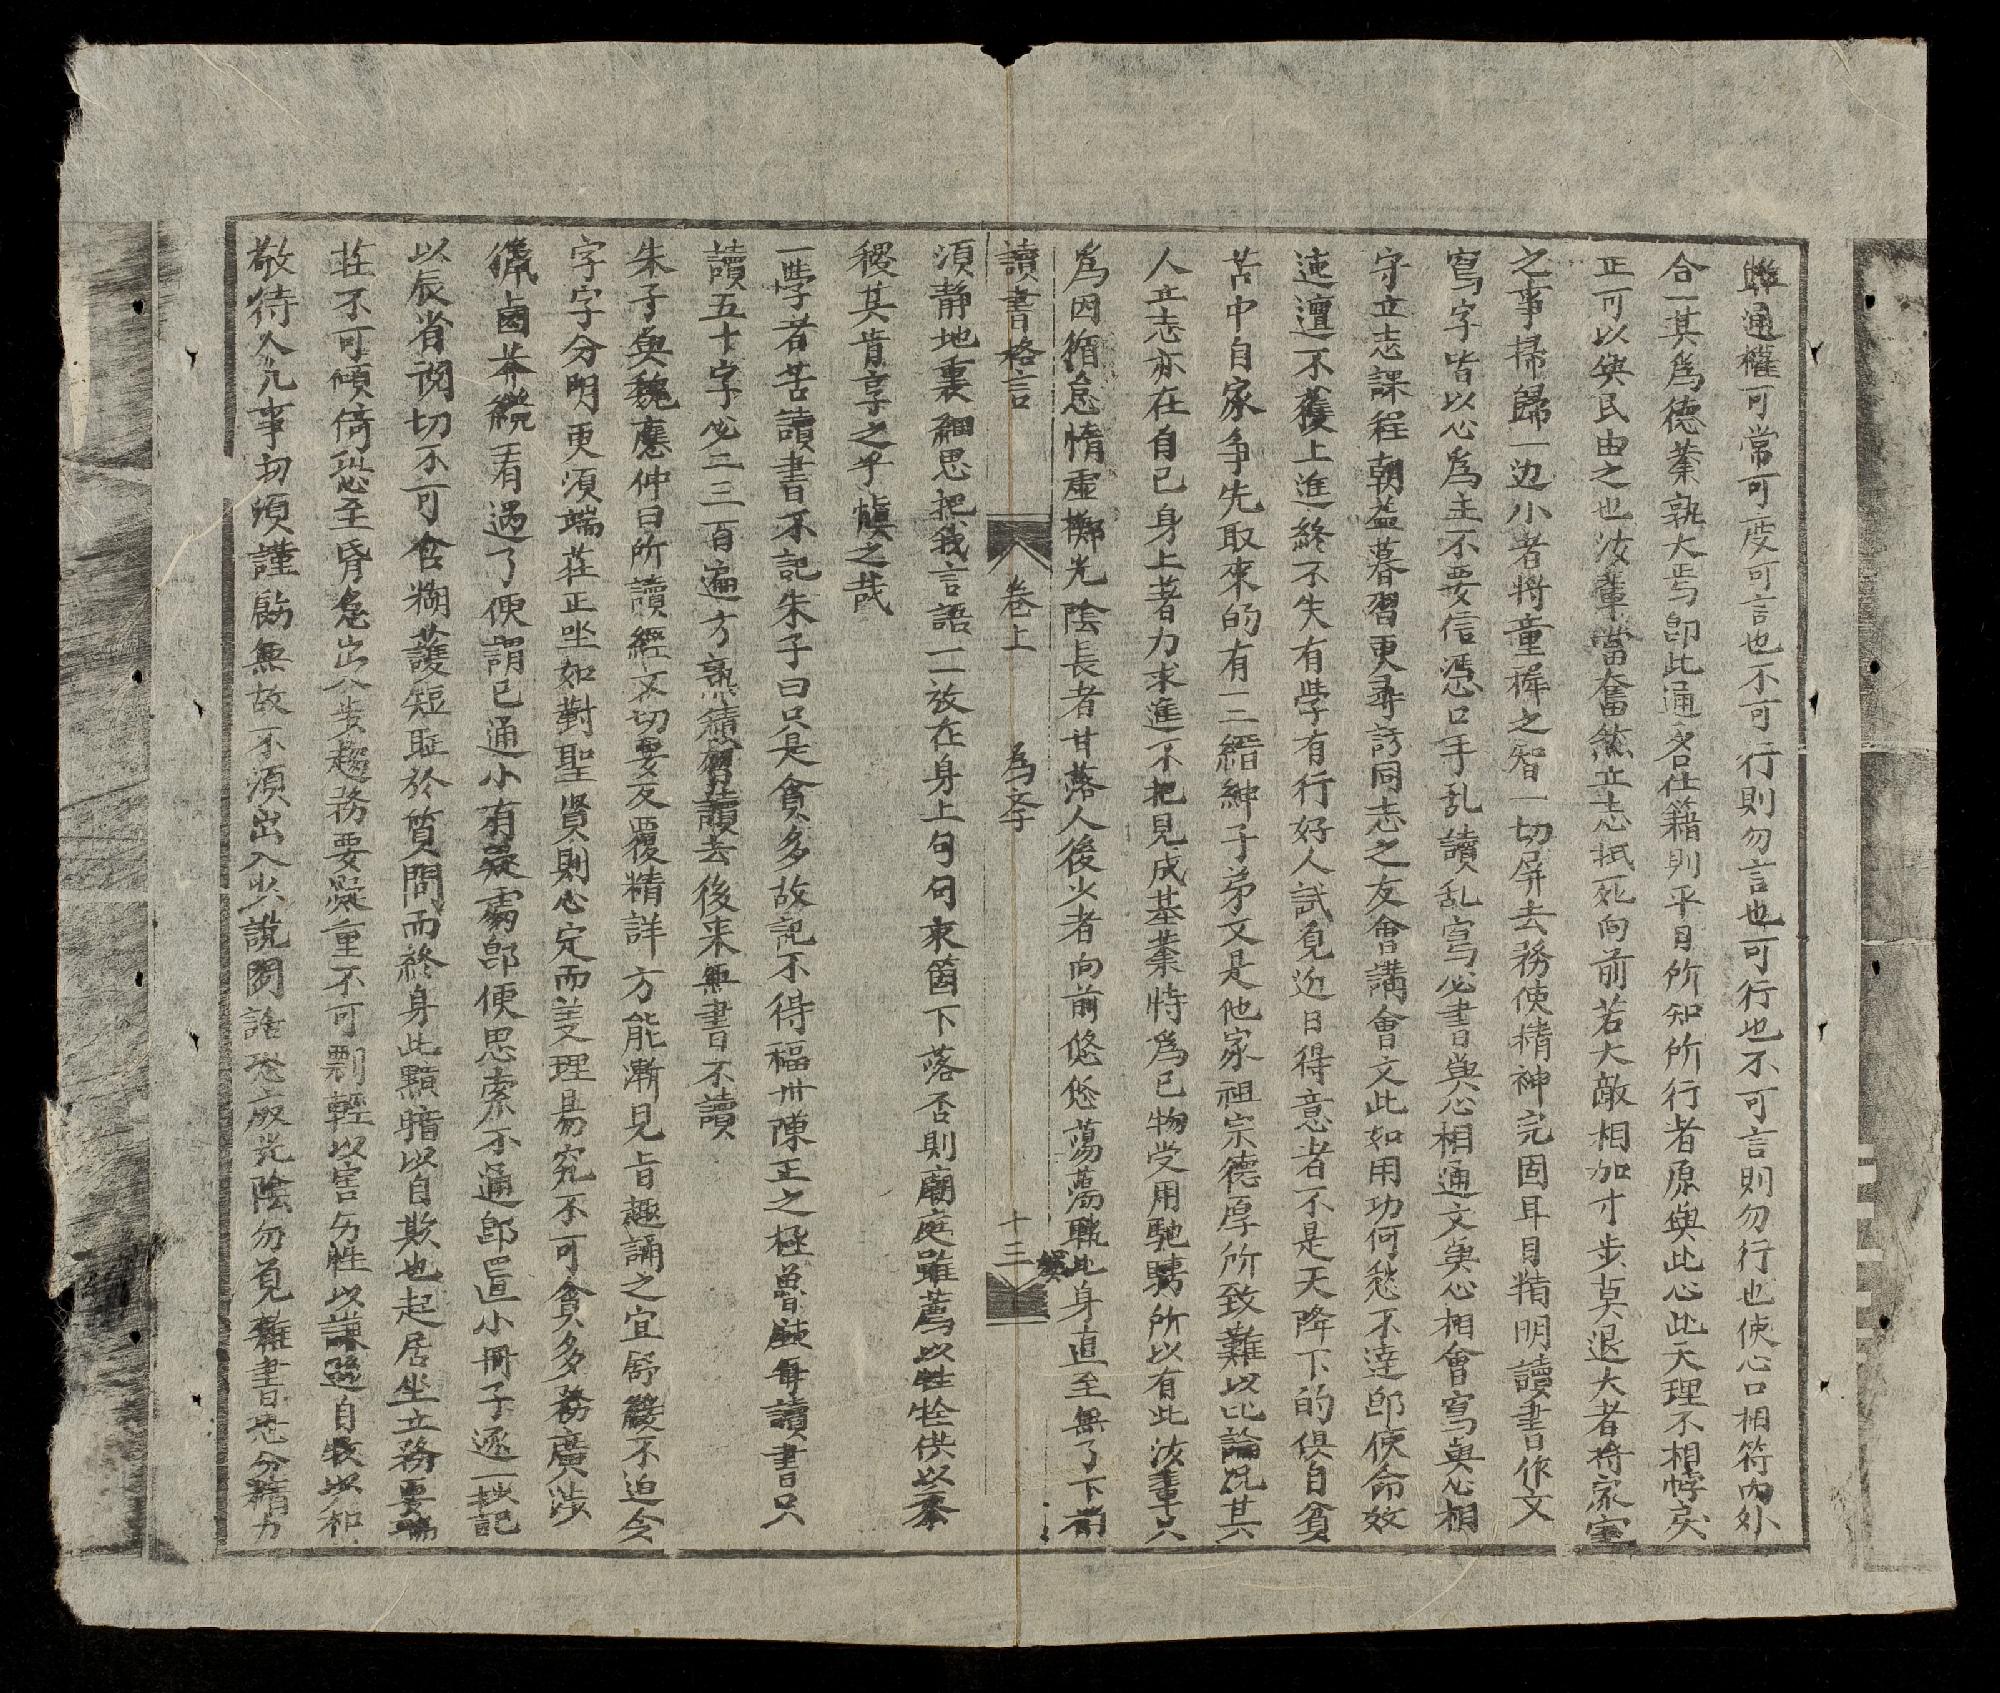 雖通權可常可度可言也不可行則勿言也可行也不可言則勿行也使心口相符內外
合一其為德業孰大焉即此通名仕籍則平日所知所行者原與此心此天理不相悖戾
正可以與民由之也汝輩當奮然立志拭死向前若大敵相加寸步莫退大者將家室
之事掃歸一边小者將童穉之智一切屏去務使精神完固耳目精明讀書作文
寫字皆以心為主不要信憑口手乱讀乱寫必書與心相通文與心相會寫與心相
守立志課程朝益暮習更尋訪同志之友會講會文此如用功何愁不達即使命效
迍邅不獲上進終不失有學有行好人試見近日得意者不是天降下的俱自貧
苦中自家爭先取來的有一二縉紳子弟文是他家祖宗德厚所致難以比論况其
人立志亦在自己身上著力求進不把見成基業恃為己物受用馳騁所以有此汝輩只
為因循怠惰虛擲光陰長者甘落人後少者向前悠悠蕩蕩躭此身直至無了下梢
讀書格言 卷上 為學 十三
須靜地裏細思把我言語一一放在身上句句求箇下落否則廟庭雖薦以牲牷供以黍
稷其肯享之乎慎之哉
一學者苦讀書不記朱子曰只是貪多故記不得福州陳正之極魯鈍每讀書只
讀五十字必二三百遍方熟積習讀去後来無書不讀
朱子與魏應仲曰所讀經文切要反覆精詳方能漸見旨趣誦之宜舒緩不迫令
字字分明更須端莊正坐如對聖賢則心定而義理易究不可貪多務廣涉
獵鹵莽纔看過了便謂已通小有疑處即便思索不通即置小冊子逐一抄記
以辰省閱切不可含糊護短耻於質問而終身此黯暗以自欺也起居坐立務要端
莊不可傾倚恐至昏怠出入步趨務要凝重不可剽輕以害 性以謙遜自牧以和
敬待人凡事切須謹飭無故不須出入少說閒話恐廢光陰勿見雜書恐分精力